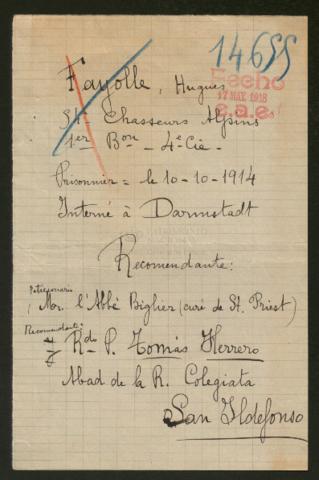 14655
Fayolle, Hugues
Fecho
17 MAY. 1918
C.a.e.
Chasseurs Alpins
1er Bon - 4e Cie -
Prisonnier = le 10-10-1914
Interné à Darmstadt
Recomendante:
Peticionario
Mr. l'Abbé Biglier (curé de St. Priest)
Recomendante:
Rdo P. Tomás Herrero
Abad de la R. Colegiata
San Ildefonso